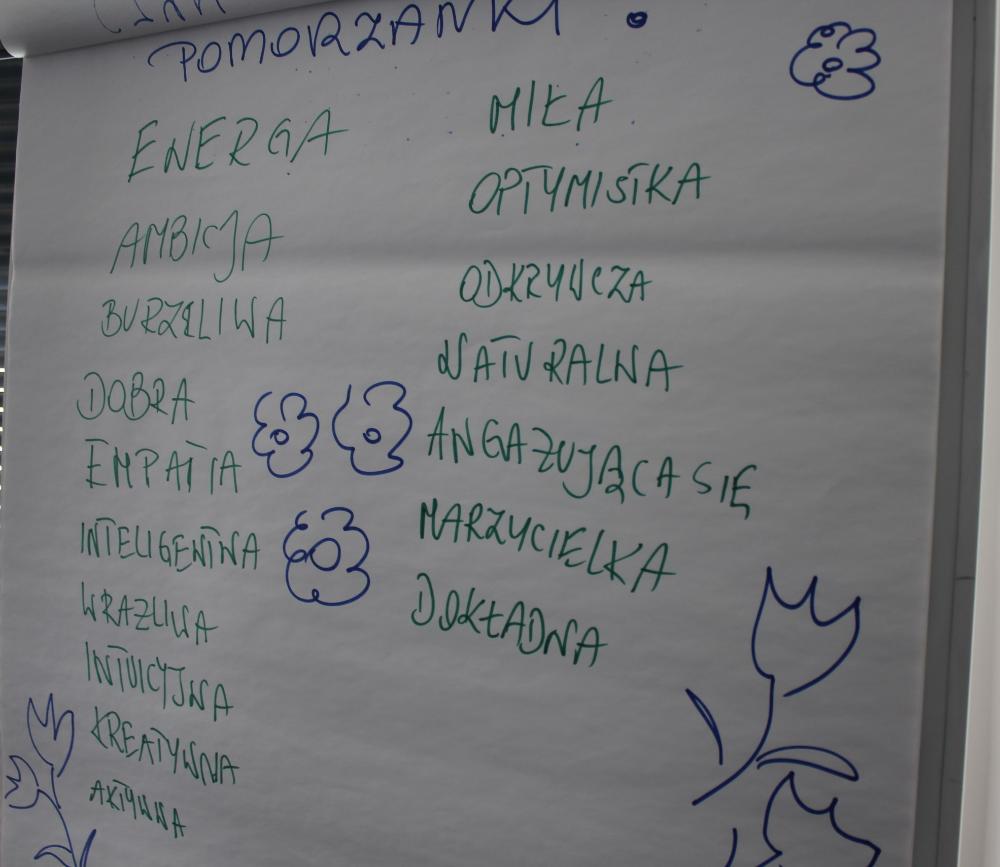 POMORZANKI
ENERGA
AMBICJA
BURZLIWA
DOBRA
EMPATIA
INTELIGENTNA
WRAZLIWA
INTUICYJNA
KREATYWNA
AKTYWNA
MIŁA
OPTYMISTKA
ODKRYWCZA
NATURALNA
ANGAŻUJĄCA SIĘ
MARZYCIELKA
DOKŁADNA